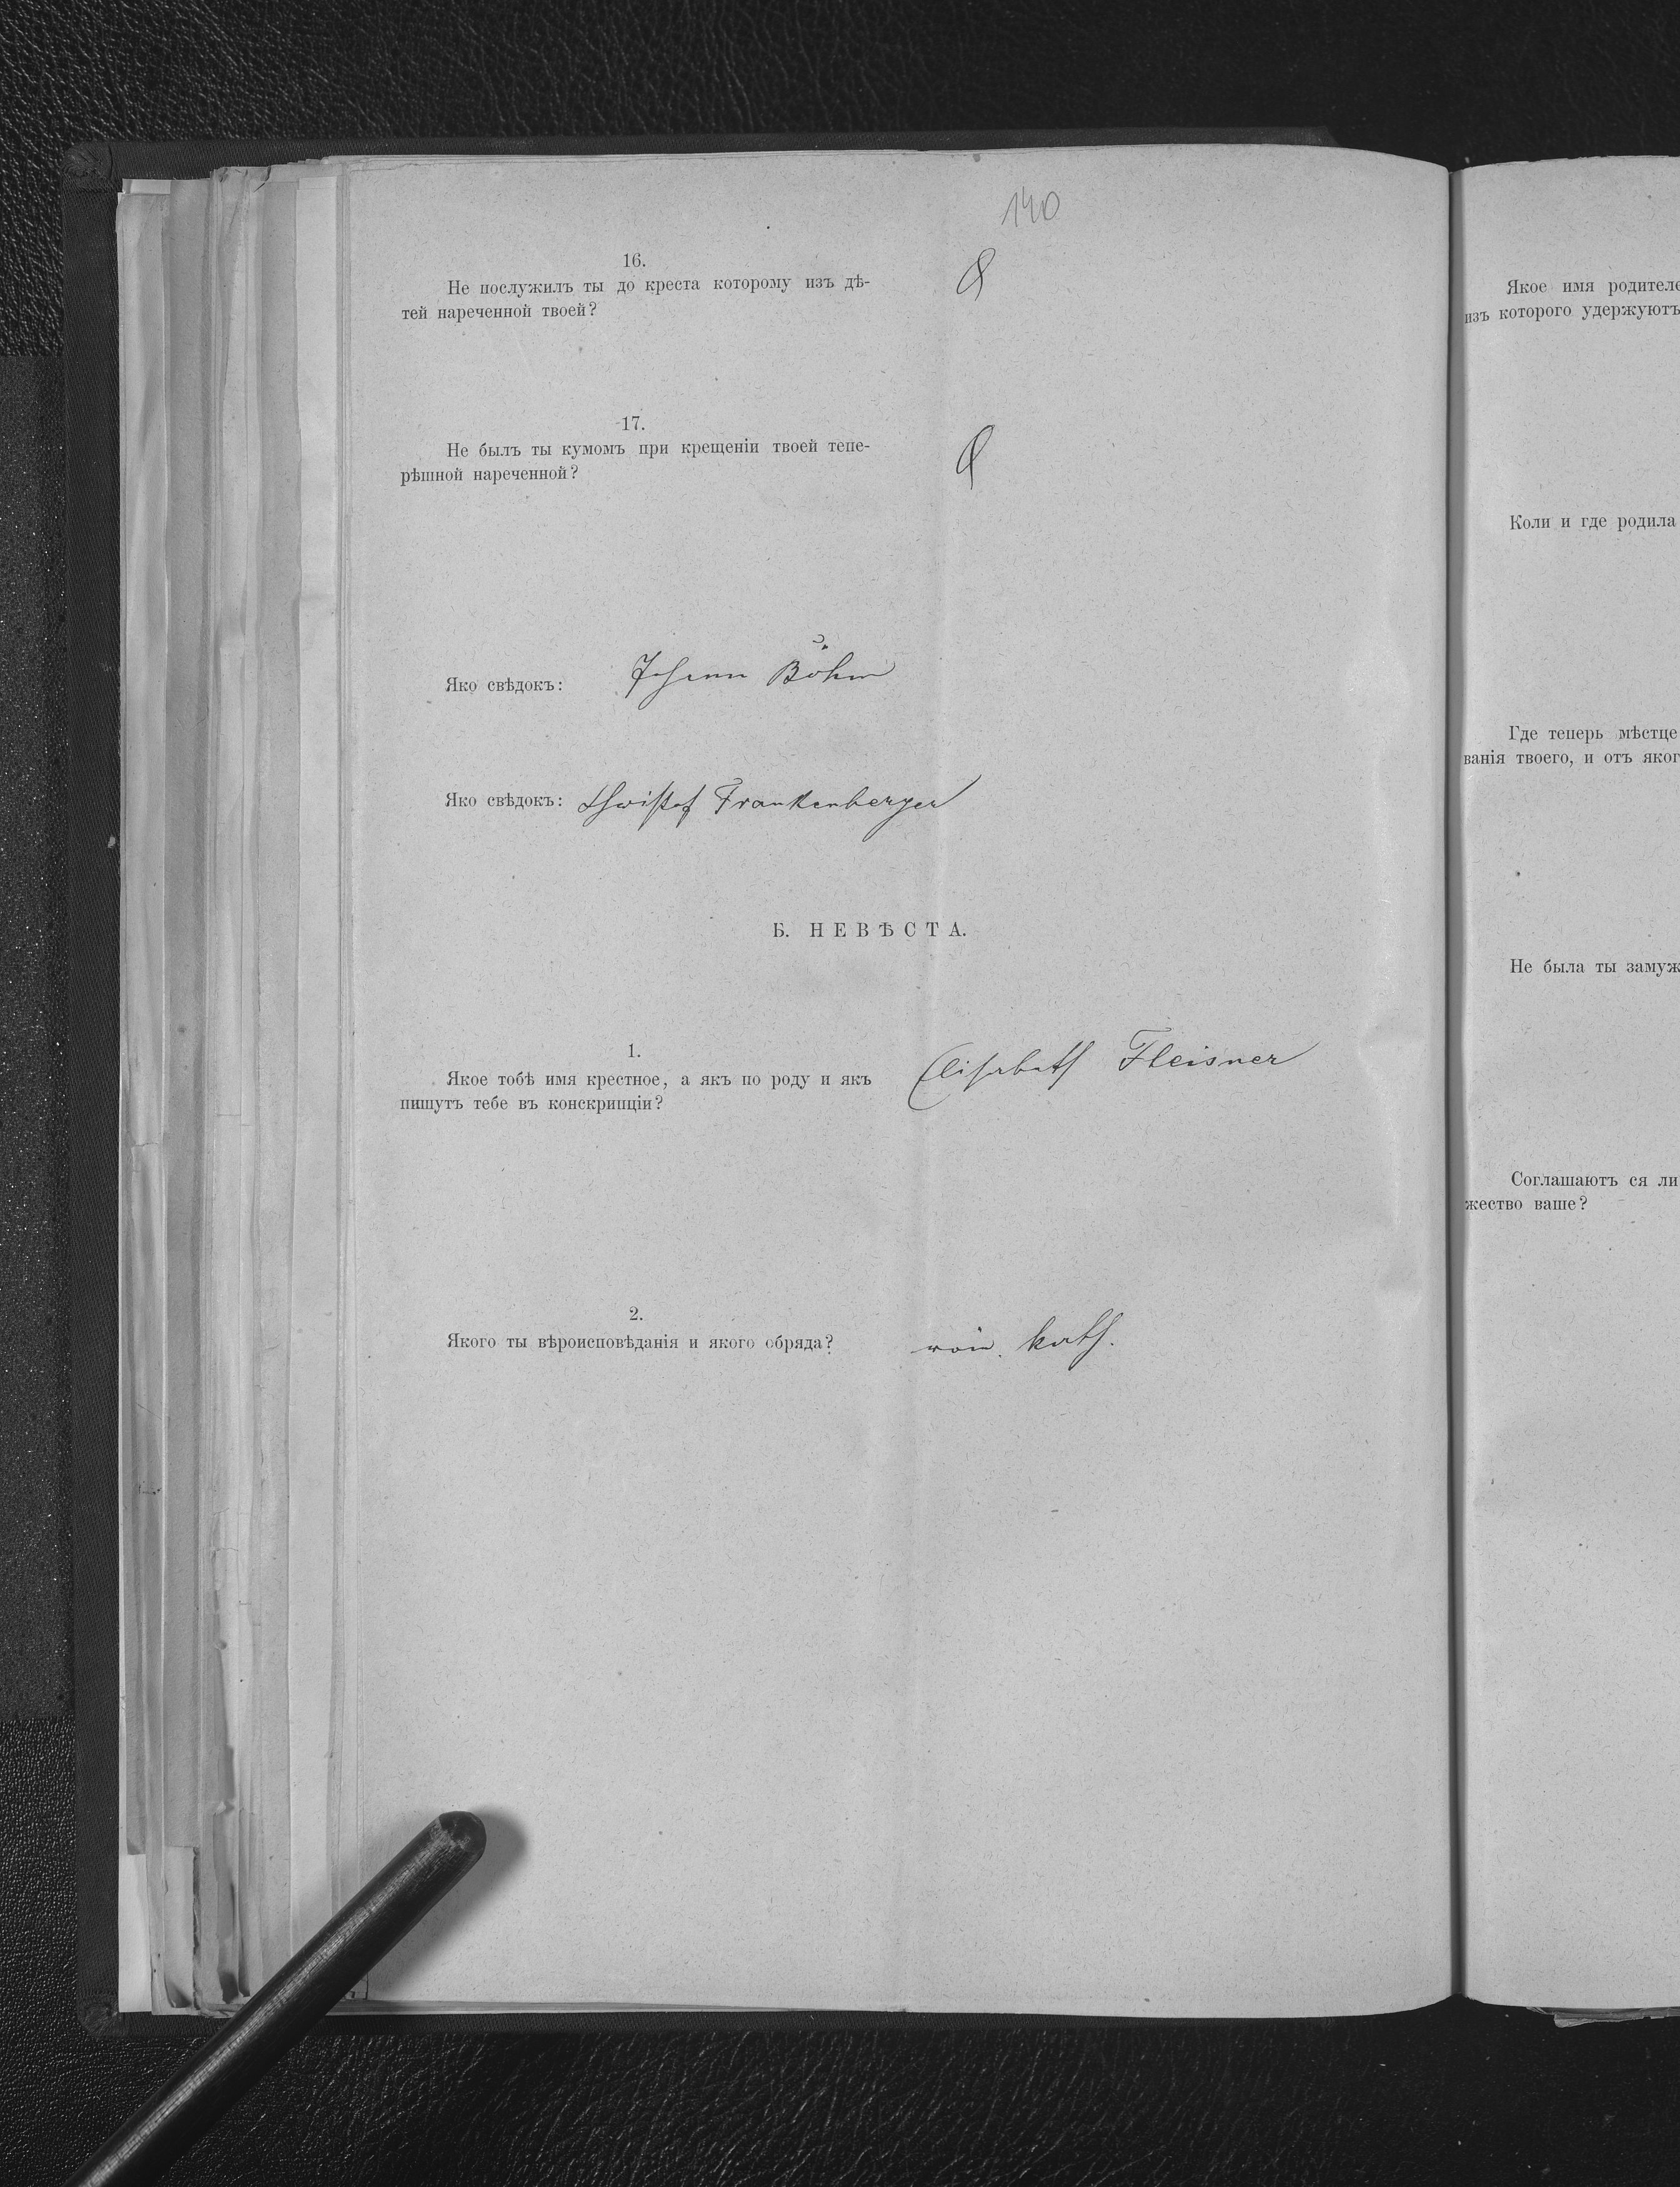 140
16.
Не послужилъ ты до креста которому изъ дѣ-
тей нареченной твоей?
17.
Не былъ ты кумомъ при крещеніи твоей тепе-
рѣшной нареченной?
Яко свѣдокъ: Johann Böhm
Яко свѣдокъ: Christof Frankenberger
Б. НЕВѢСТА.
1.
Якое тобѣ имя крестное, а якъ по роду и якъ
пишутъ тебе въ конскрипціи?
Elisabeth Fleisner
2.
Якого ты вѣроисповѣданія и якого обряда? röm. kath.
Якое имя родителе
изъ которого удержуютъ
Коли и где родила
Где теперь мѣстце
ванія твоего, и отъ яког
Не была ты замуж
Соглашаютъ ся ли
жество ваше?